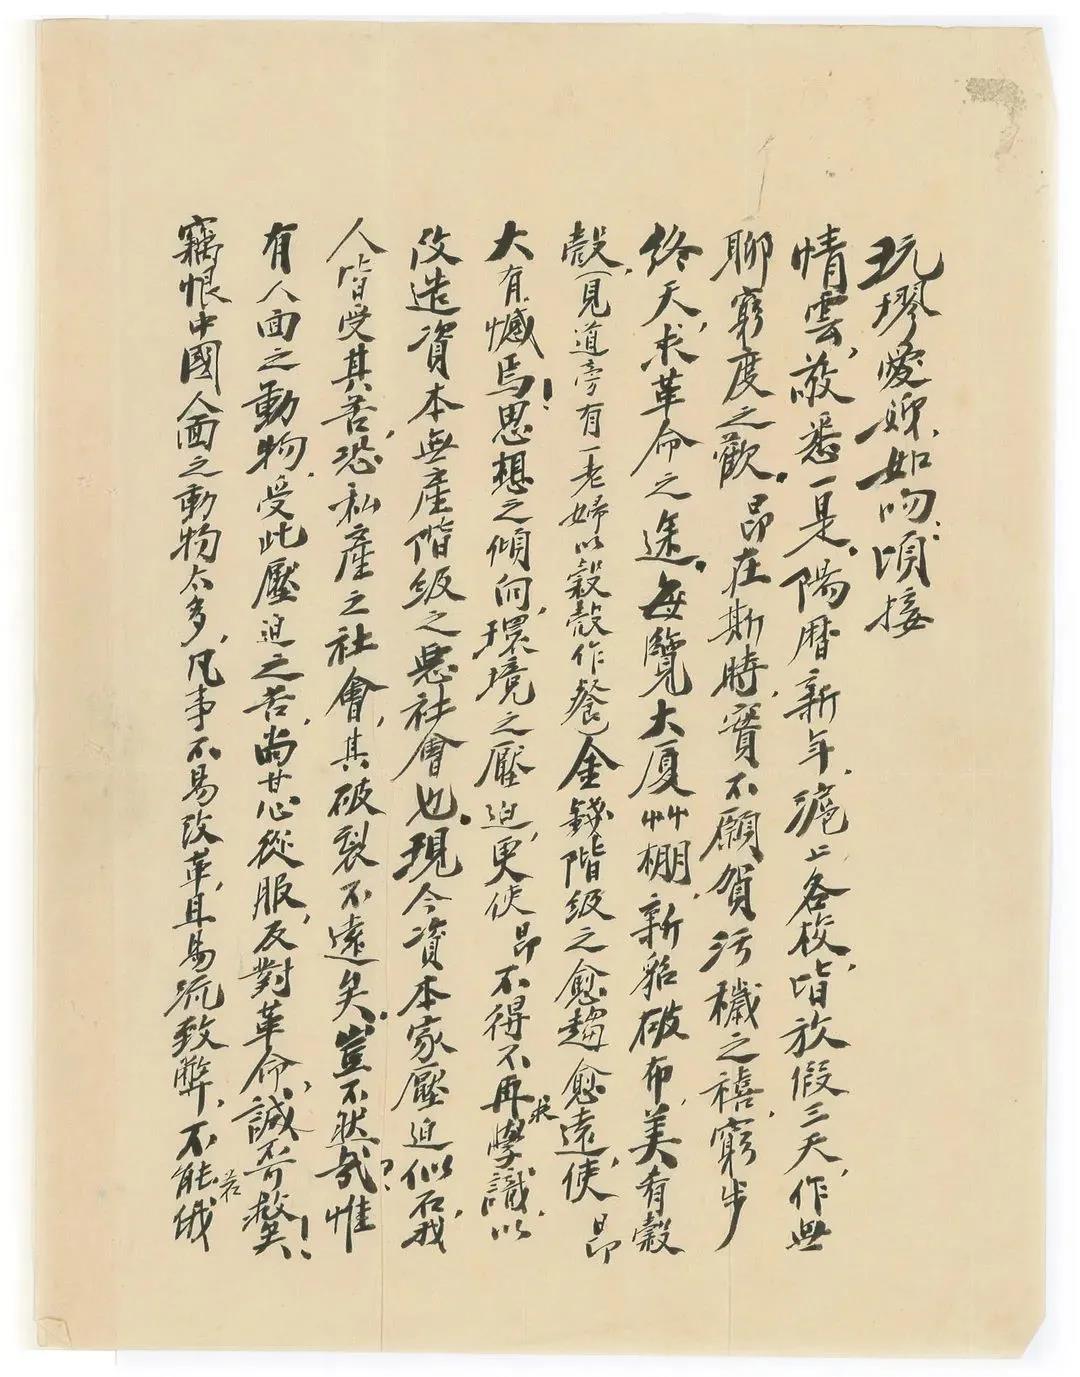 玩璆愛婦如吻：頃接
情雲，敬悉一是。陽曆新年，滬上各校，皆放假三天，作無
聊窮度之歡。昂在斯時，實不願賀污穢之禧，窮步
終天，求革命之途。每覽大厦艸棚，新貂破布，美有穀
殼，一見道旁有一老婦以穀殼作餐，金錢階級之愈趨愈遠，使昂
大有憾焉！思想之傾向，環境之壓迫，更使昂不得不再求學識，以
改造資本無產階級之惡社會也。現今資本家壓迫似石，我
人皆受其苦，恐私產之社會，其破裂不遠矣。豈不然哉？惟
有人面之動物，受此壓迫之苦，尚甘心從服，反對革命，誠不可獘！
竊恨中國人面之動物太多，凡事不易改革，且易流致弊，不能若俄